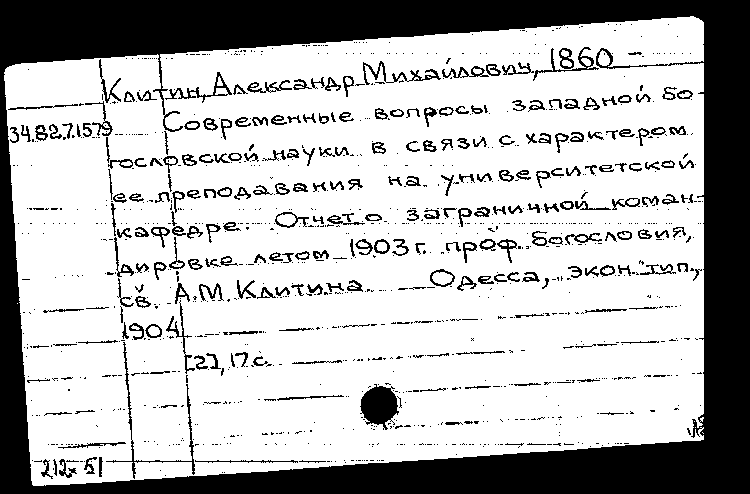 Клитин, Александр Михайлович, 1860 -
34.82.7.1579 Современные вопросы западной бо-
гословской науки в связи с характером
ее преподавания на университетской
кафедре. Отчет о заграничной коман-
дировке летом 1903 г. проф. богословия,
св. А.М. Клитина. Одесса, "экон." тип.,
1904
[2], 17 с.